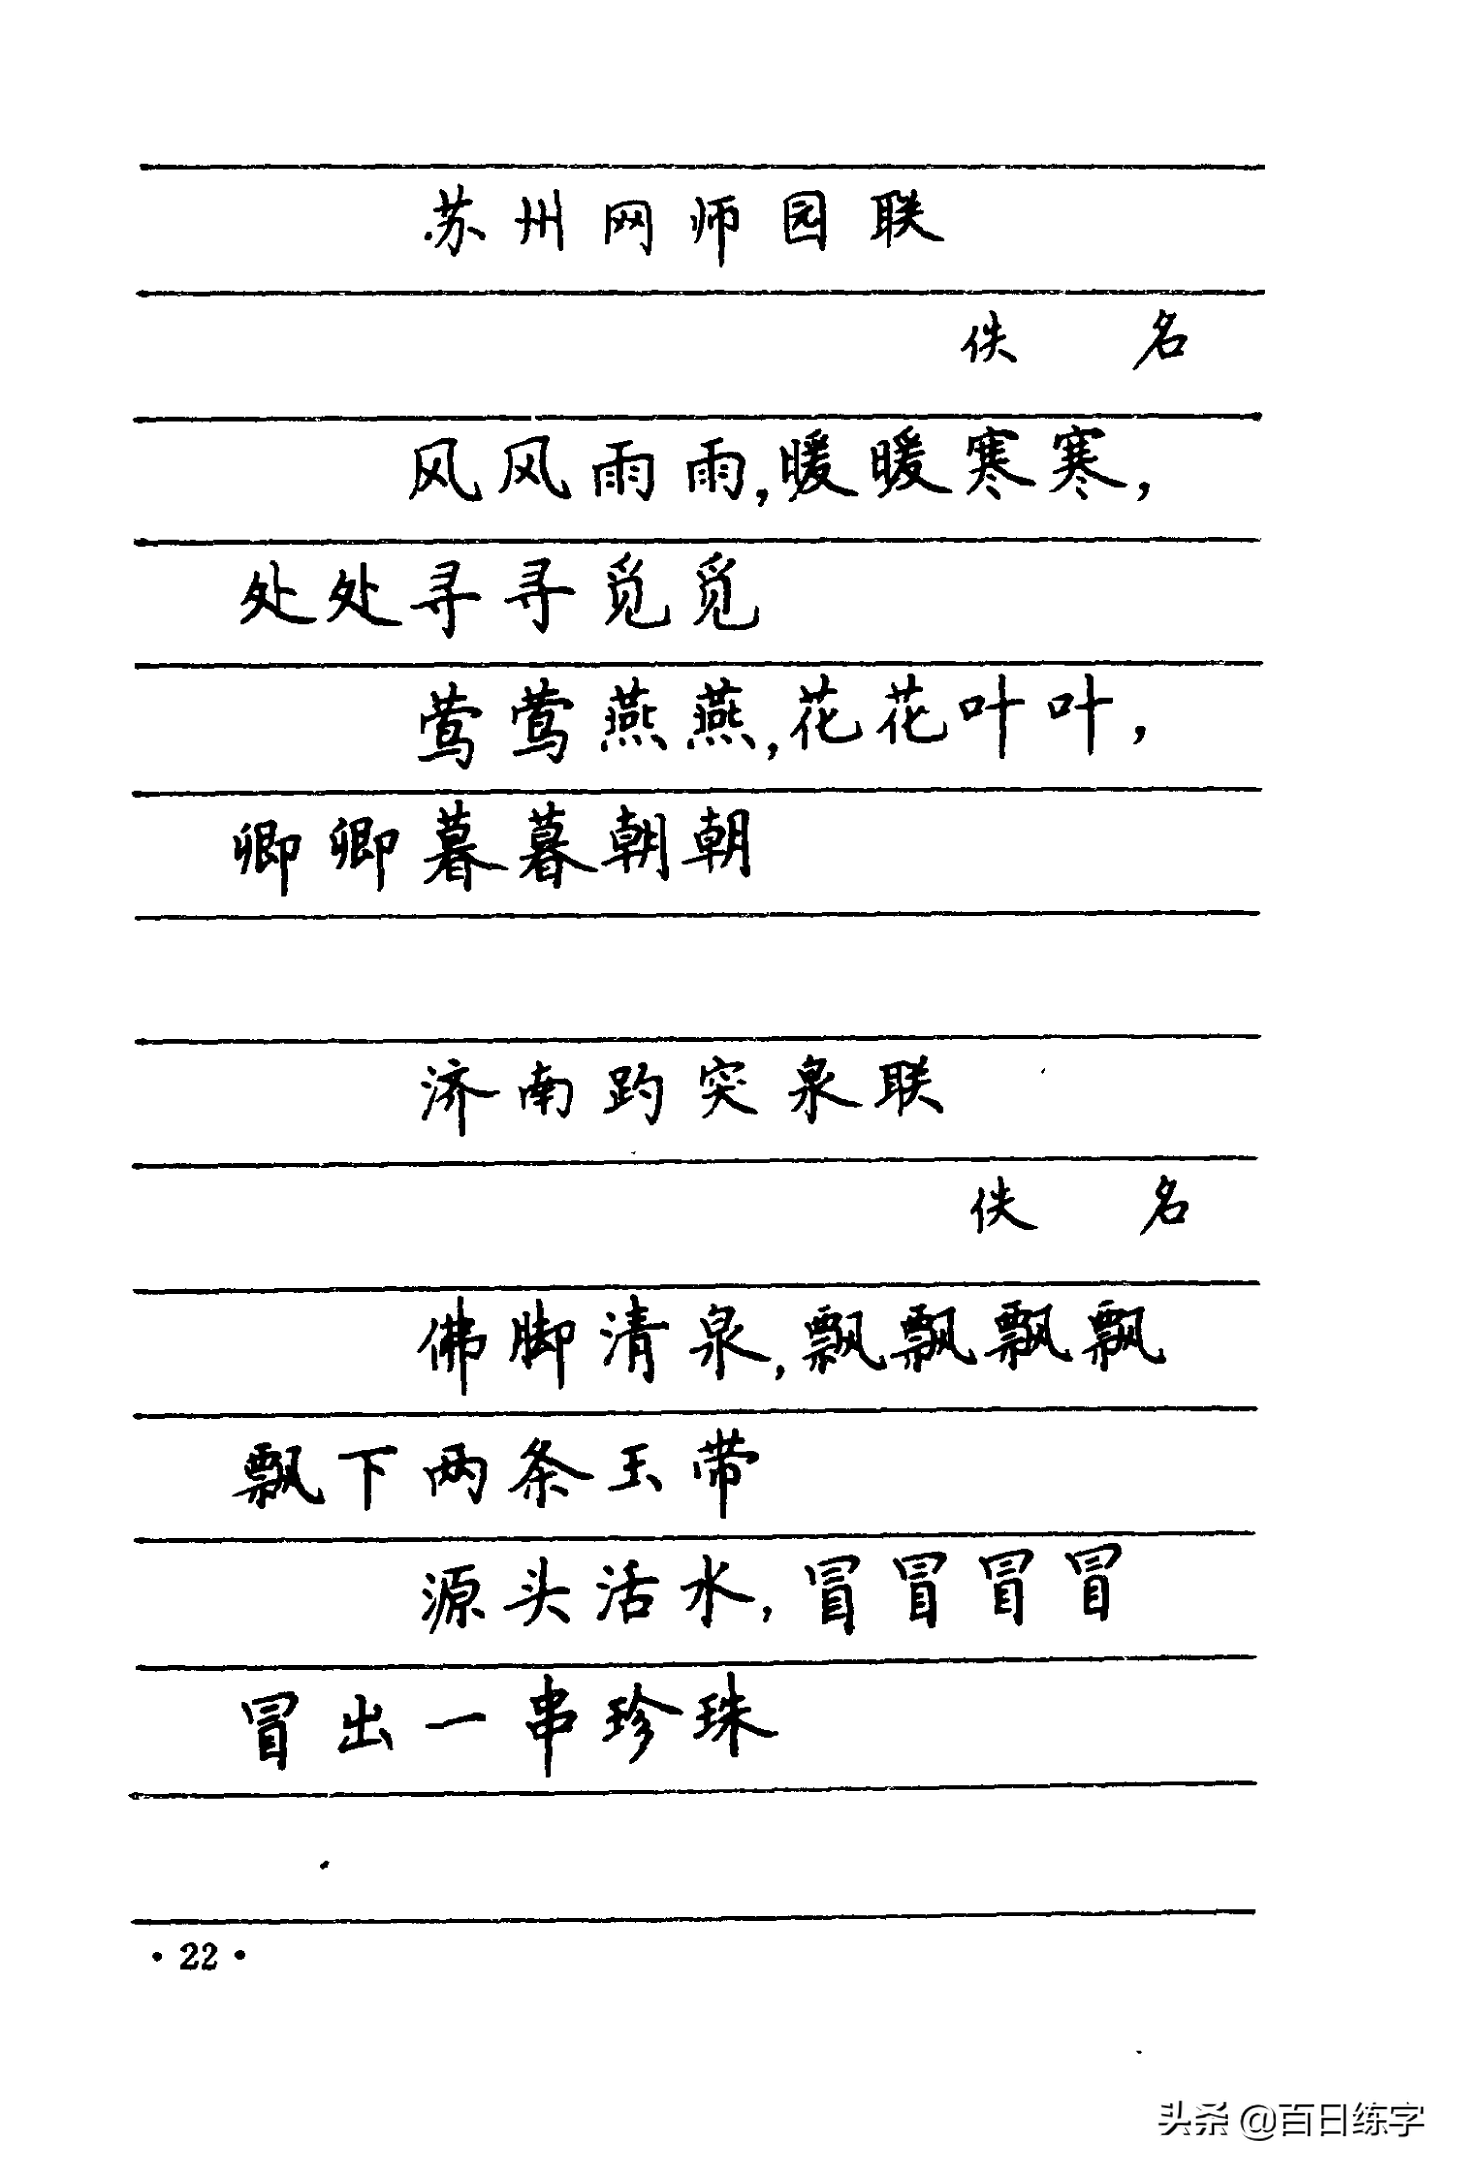 苏州网师园联
佚 名
风风雨雨,暖暖寒寒,
处处寻寻觅觅
莺莺燕燕,花花叶叶,
卿卿暮暮朝朝
济南趵突泉联
佚 名
佛脚清泉,飘飘飘飘
飘下两条玉带
源头活水,冒冒冒冒
冒出一串珍珠
·22·
头条 @百日练字